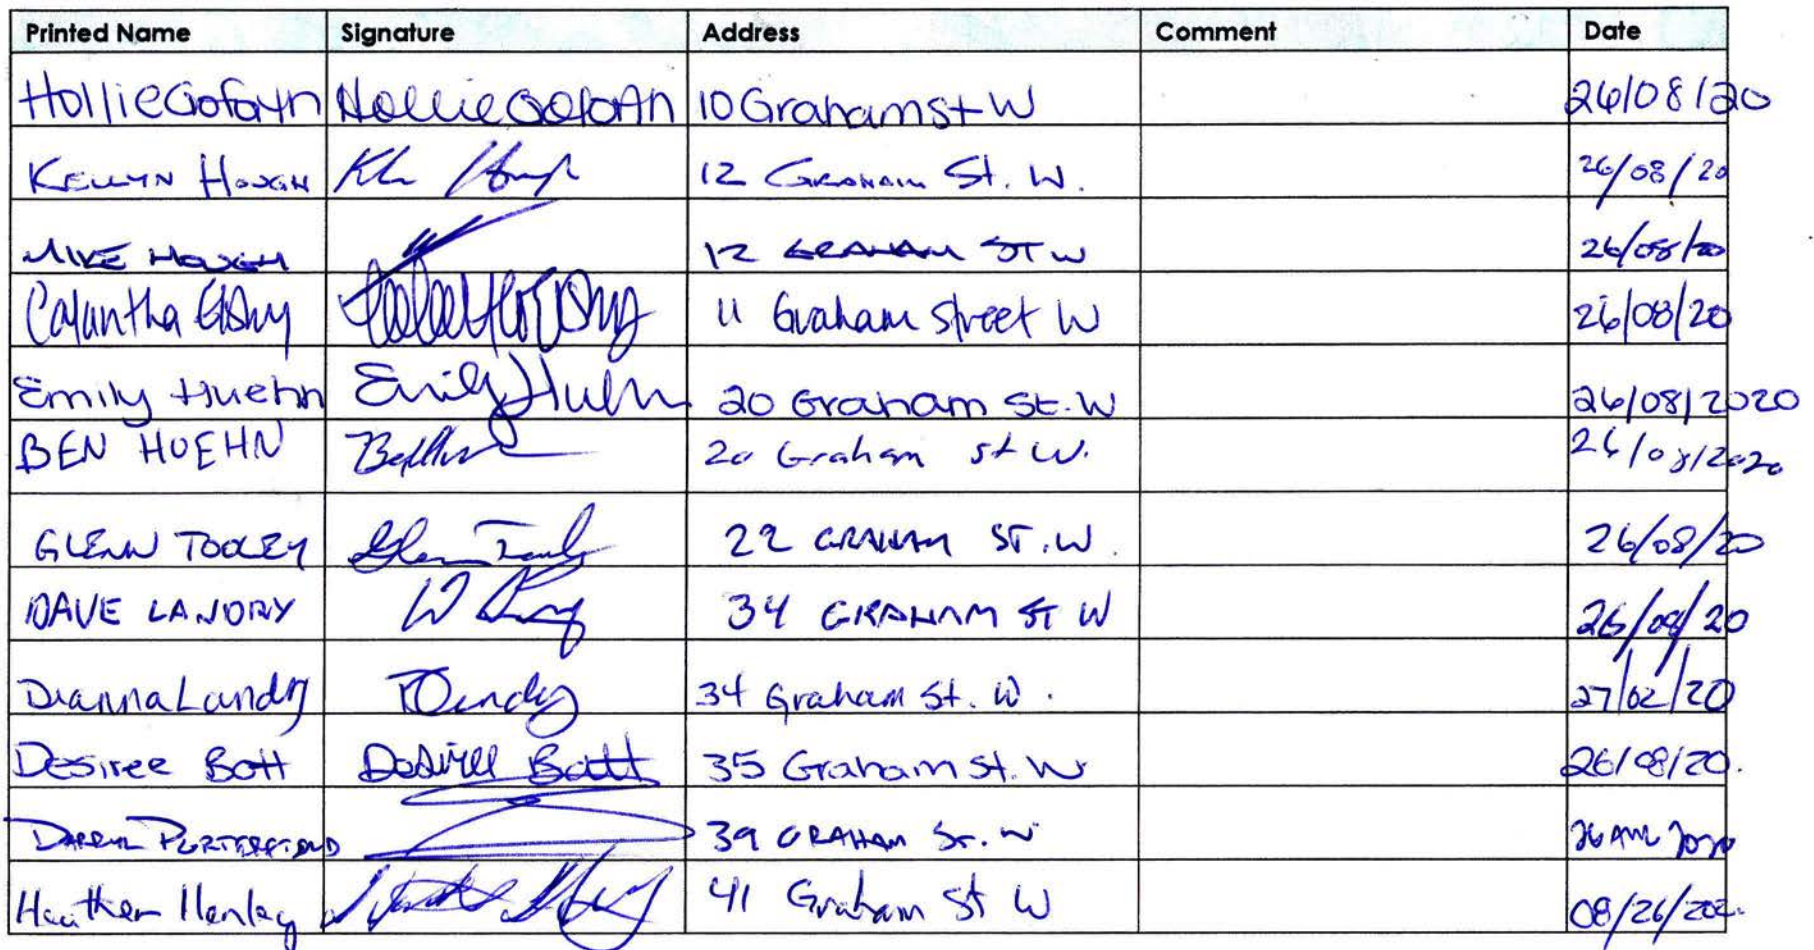 Printed Name Signature Address Comment Date
Hollie Goforth Hollie Goforth 10 Graham st W 26/08/20
KELLYN HOUGH 12 GRAHAM St. W. 26/08/20
MIKE HOUGH 12 GRAHAM ST W 26/08/20
11 Graham Street W 26/08/20
Emily Huehn Emily Huehn 20 Graham St. W 26/08/2020
BEN HUEHN 20 Graham st W. 26/08/2020
GLENN TOOLEY 22 GRAHAM ST. W. 26/08/20
DAVE LANDRY 34 GRAHAM ST W 26/08/20
Dianna Landry 34 Graham St. W. 27/02/20
Desiree Bott Desiree Bott 35 Graham st. W 26/08/20.
DARRYL PORTERFIELD 39 GRAHAM ST. W 2020
Heather Henley 41 Graham St W